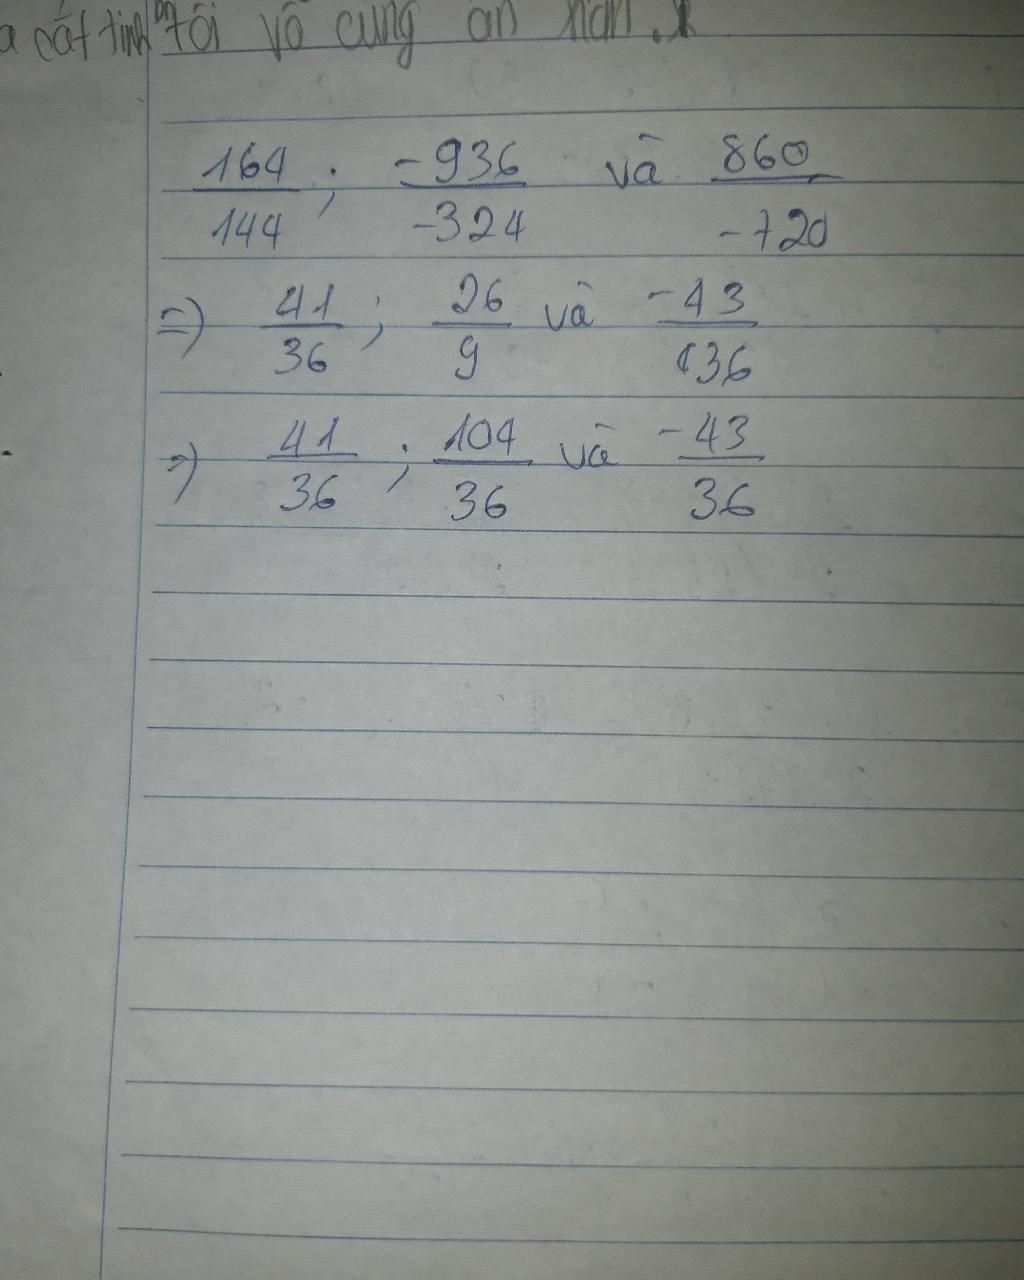 cắt tình tôi vô cùng ân hận.
164/144 ; -936/-324 và 860/-720
=> 41/36 ; 26/9 và -43/36
=> 41/36 ; 104/36 và -43/36